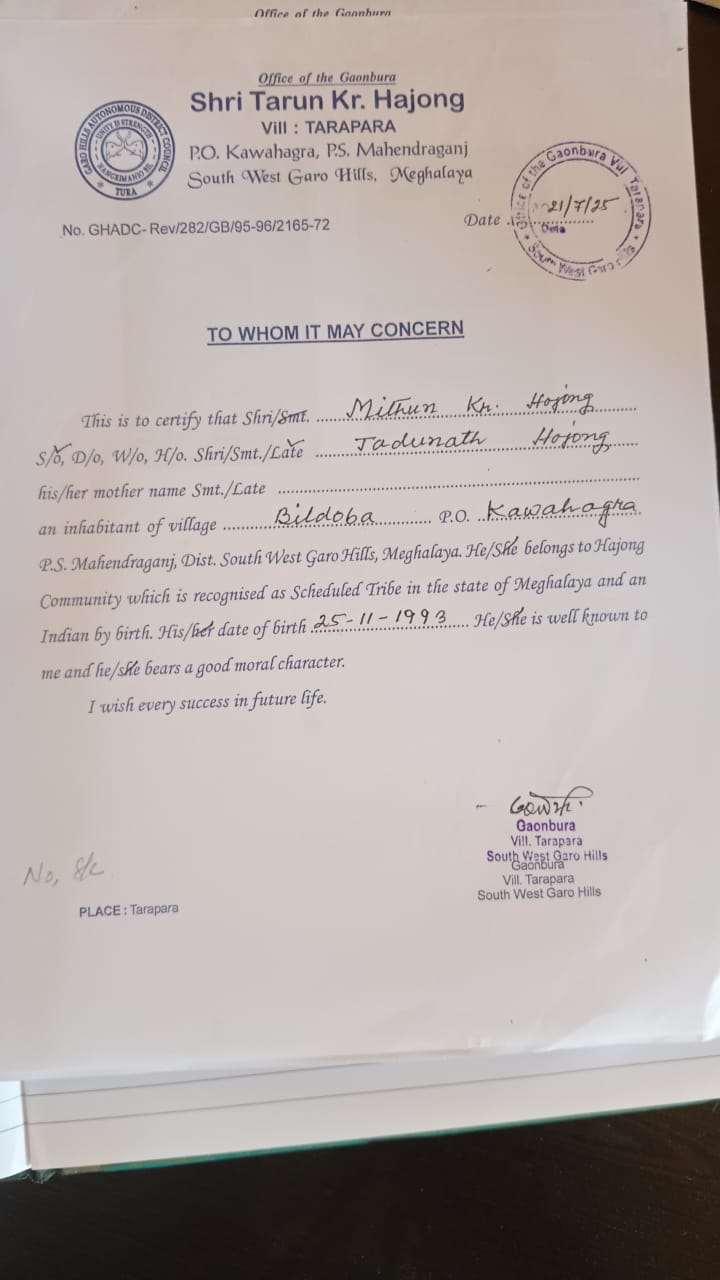 Office of the Gaonbura
Office of the Gaonbura
Shri Tarun Kr. Hajong
Vill : TARAPARA
P.O. Kawahagra, P.S. Mahendraganj
South West Garo Hills, Meghalaya
GARO HILLS AUTONOMOUS DISTRICT COUNCIL
UNITY IS STRENGTH
TURA
No. GHADC- Rev/282/GB/95-96/2165-72
Date 21/7/25
Office of the Gaonbura Vill Tarapara
Date
South West Garo Hills
TO WHOM IT MAY CONCERN
This is to certify that Shri/Smt. Mithun Kr. Hojong
S/o, D/o, W/o, H/o. Shri/Smt./Late Jadunath Hojong
his/her mother name Smt./Late
an inhabitant of village Bildoba P.O. Kawahagra
P.S. Mahendraganj, Dist. South West Garo Hills, Meghalaya. He/She belongs to Hajong
Community which is recognised as Scheduled Tribe in the state of Meghalaya and an
Indian by birth. His/her date of birth 25-11-1993 He/She is well known to
me and he/she bears a good moral character.
I wish every success in future life.
Gaonbura
Vill. Tarapara
South West Garo Hills
Gaonbura
Vill. Tarapara
South West Garo Hills
No,
PLACE : Tarapara